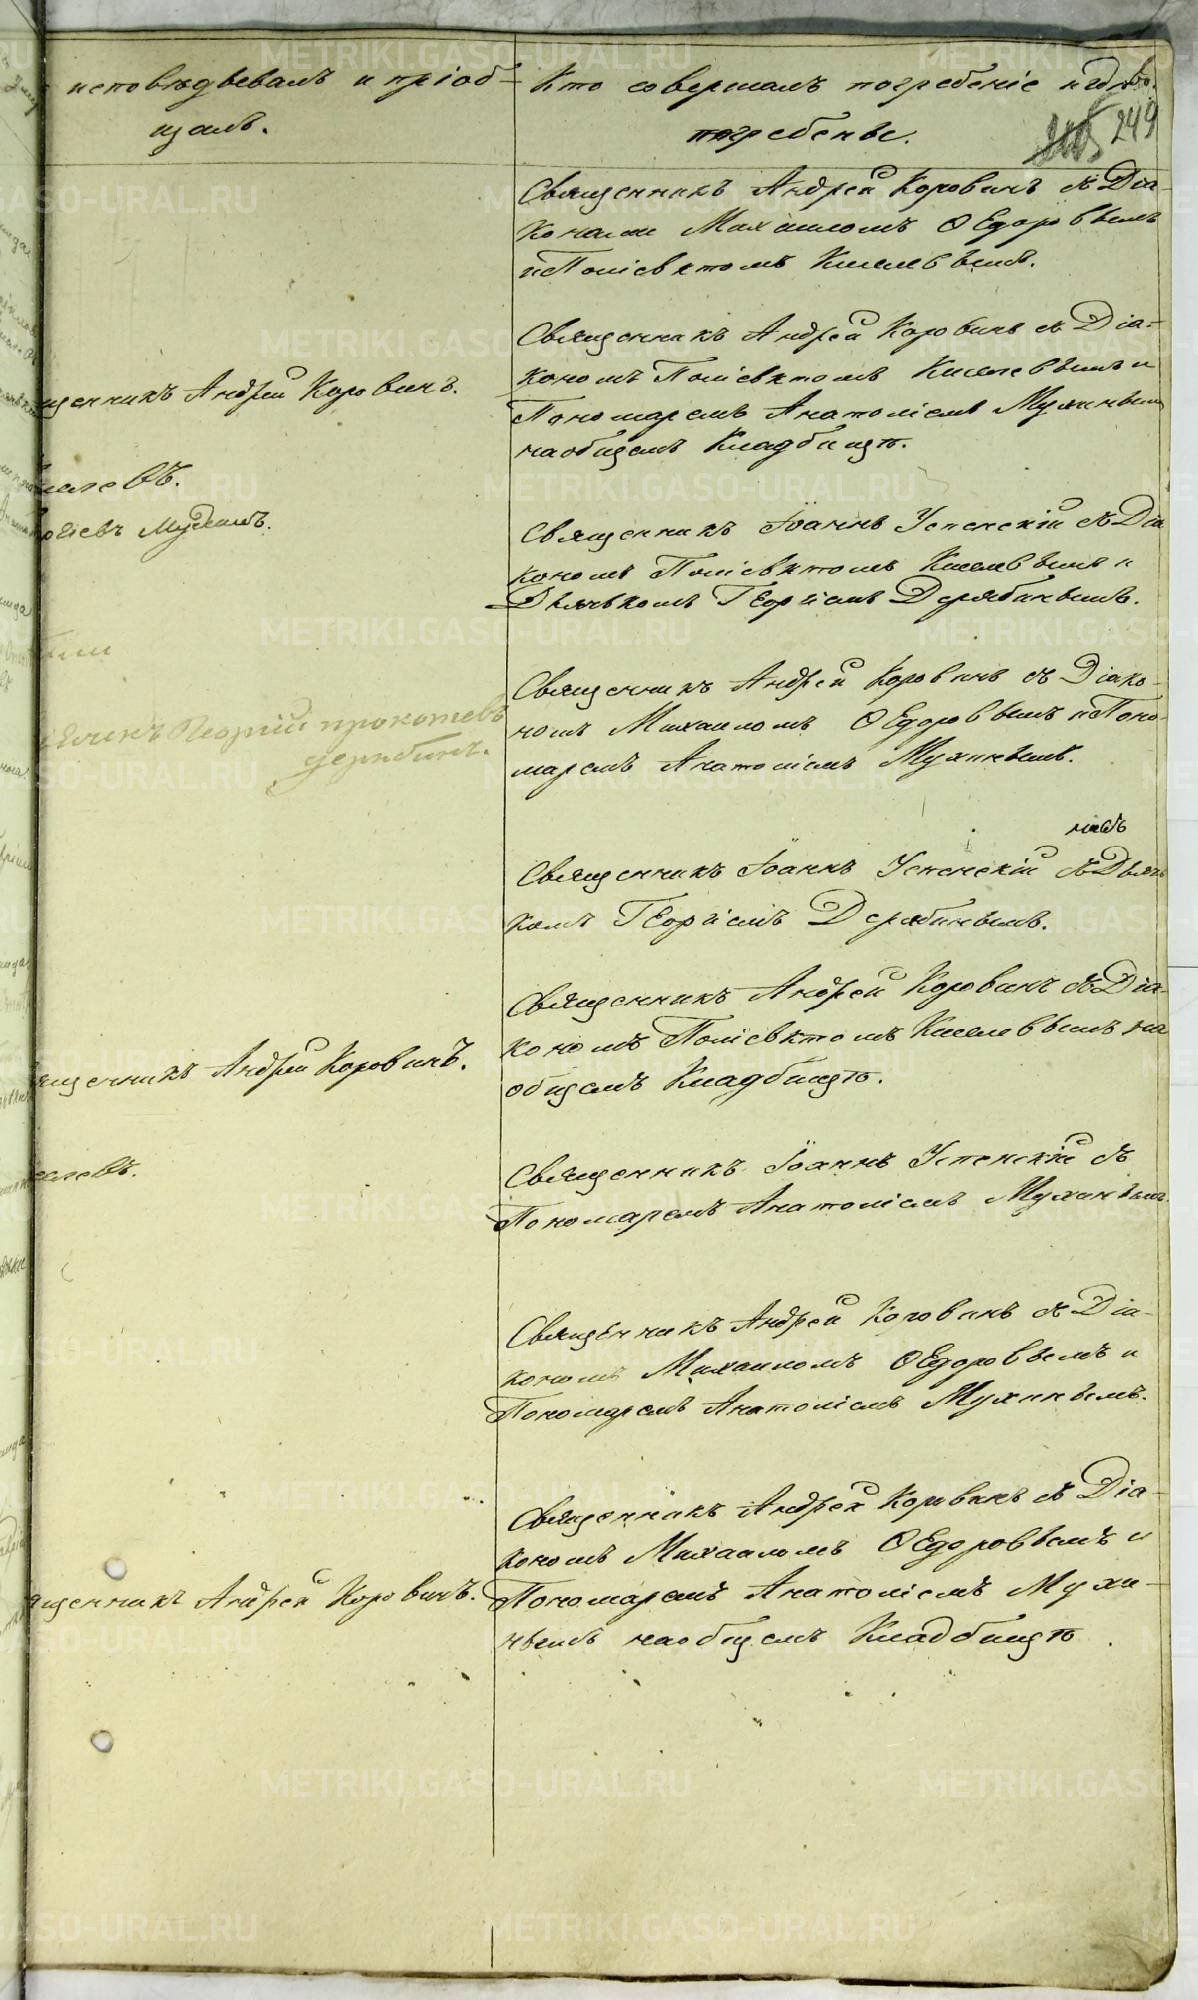 исповѣдвевалъ и пріоб-
щалъ.
Кто совершалъ погребеніе и гдѣ
погребенье.
249
Священникъ Андрей Коровинъ съ Діа-
конами Михаиломъ Ѳедоровымъ
и Поліевктомъ Киселевымъ.
Священникъ Андрей Коровинъ съ Діа-
кономъ Поліевктомъ Киселевымъ и
Пономаремъ Анатоліемъ Мухинымъ
на общемъ Кладбищѣ.
щенникъ Андрей Коровинъ.
Священникъ Іоаннъ Успенскій съ Діа
кономъ Поліевктомъ Киселевымъ и
Дьячькомъ Георгіемъ Дерябинымъ.
Священникъ Андрей Коровинъ съ Діако-
номъ Михаиломъ Ѳедоровымъ и Поно-
маремъ Анатоліемъ Мухинымъ.
Георгій прокопіевъ
дерябинъ.
Священникъ Іоаннъ Успенскій съ Дьячь
комъ Георгіемъ Дерябинымъ.
Священникъ Андрей Коровинъ съ Діа-
кономъ Поліевктомъ Киселевымъ на
общемъ Кладбищѣ.
щенникъ Андрей Коровинъ.
Священникъ Іоаннъ Успенскій съ
Пономаремъ Анатоліемъ Мухинымъ.
Священникъ Андрей Коровинъ съ Діа-
кономъ Михаиломъ Ѳедоровымъ и
Пономаремъ Анатоліемъ Мухинымъ.
Священникъ Андрей Коровинъ съ Діа-
кономъ Михаиломъ Ѳедоровымъ и
Пономаремъ Анатоліемъ Мухи-
нымъ на общемъ Кладбищѣ.
щенникъ Андрей Коровинъ.
METRIKI.GASO-URAL.RU